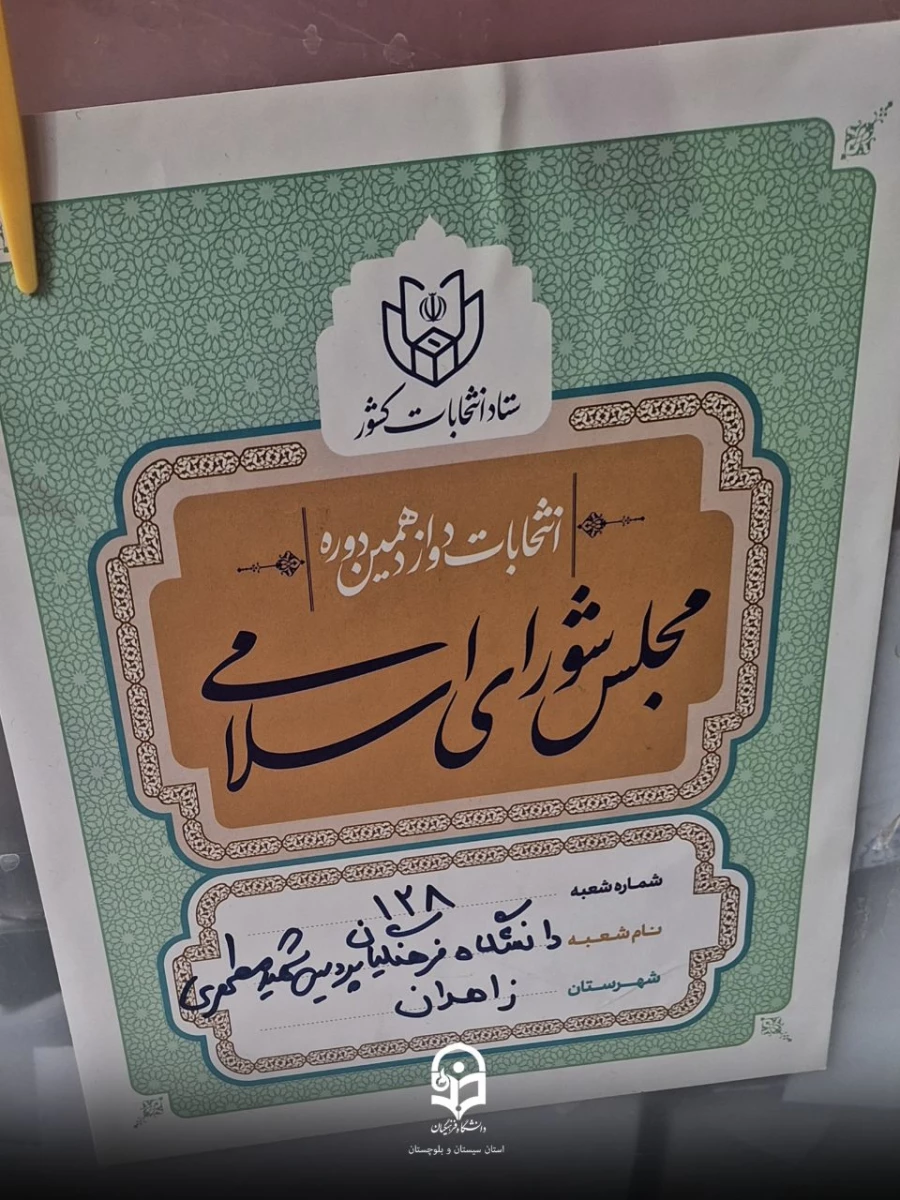 ستاد انتخابات کشور
انتخابات دوازدهمین دوره
مجلس شورای اسلامی
شماره شعبه ۱۲۸
نام شعبه دانشگاه فرهنگیان پردیس شهید مطهری
شهرستان زاهدان
دانشگاه فرهنگیان
استان سیستان و بلوچستان